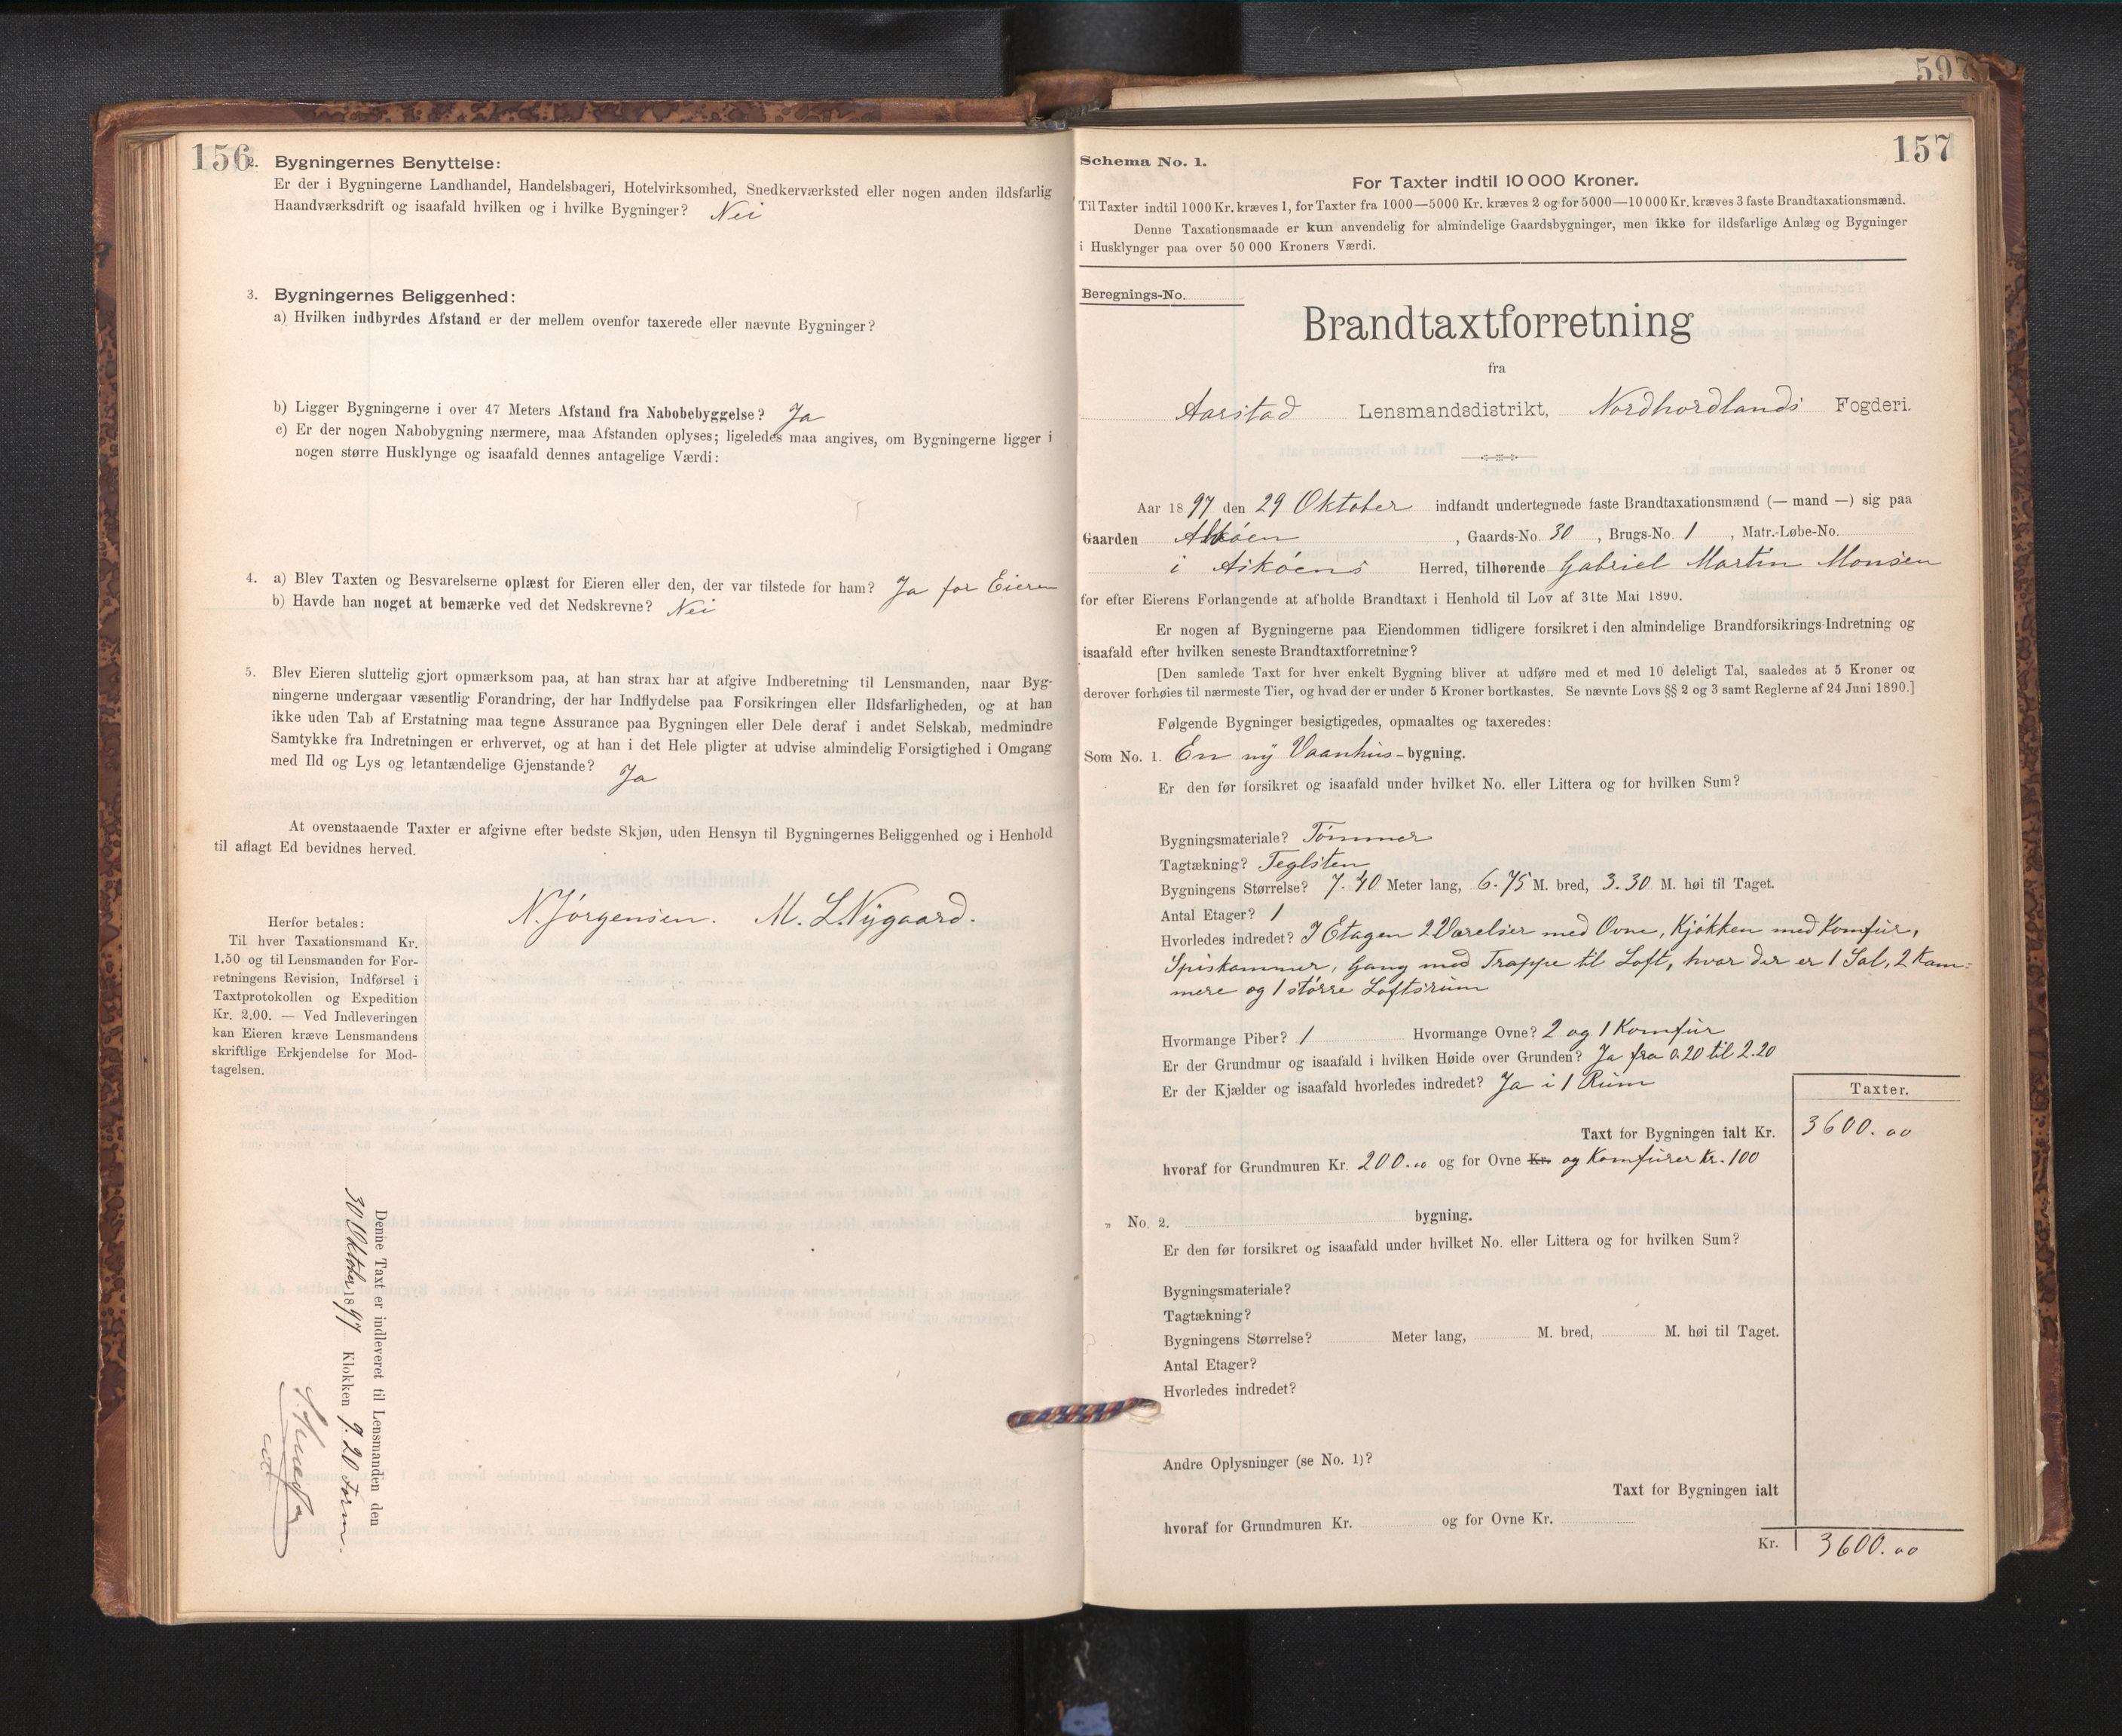 156
2. Bygningernes Benyttelse:
Er der i Bygningerne Landhandel, Handelsbageri, Hotelvirksomhed, Snedkerværksted eller nogen anden ildsfarlig
Haandværksdrift og isaafald hvilken og i hvilke Bygninger? Nei
3. Bygningernes Beliggenhed:
a) Hvilken indbyrdes Afstand er der mellem ovenfor taxerede eller nævnte Bygninger?
b) Ligger Bygningerne i over 47 Meters Afstand fra Nabobebyggelse? Ja
c) Er der nogen Nabobygning nærmere, maa Afstanden oplyses; ligeledes maa angives, om Bygningerne ligger i
nogen større Husklynge og isaafald dennes antagelige Værdi:
4. a) Blev Taxten og Besvarelserne oplæst for Eieren eller den, der var tilstede for ham? Ja for Eieren
b) Havde han noget at bemærke ved det Nedskrevne? Nei
5. Blev Eieren sluttelig gjort opmærksom paa, at han strax har at afgive Indberetning til Lensmanden, naar Byg-
ningerne undergaar væsentlig Forandring, der har Indflydelse paa Forsikringen eller Ildsfarligheden, og at han
ikke uden Tab af Erstatning maa tegne Assurance paa Bygningen eller Dele deraf i andet Selskab, medmindre
Samtykke fra Indretningen er erhvervet, og at han i det Hele pligter at udvise almindelig Forsigtighed i Omgang
med Ild og Lys og letantændelige Gjenstande? Ja
At ovenstaaende Taxter er afgivne efter bedste Skjøn, uden Hensyn til Bygningernes Beliggenhed og i Henhold
til aflagt Ed bevidnes herved.
N. Jørgensen. M. L. Nygaard.
Herfor betales:
Til hver Taxationsmand Kr.
1.50 og til Lensmanden for For-
retningens Revision, Indførsel i
Taxtprotokollen og Expedition
Kr. 2.00. — Ved Indleveringen
kan Eieren kræve Lensmandens
skriftlige Erkjendelse for Mod-
tagelsen.
Denne Taxt er indleveret til Lensmanden den
30 Oktober 1897 Klokken 9.20 Form.
157
597
Schema No. 1.
For Taxter indtil 10 000 Kroner.
Til Taxter indtil 1000 Kr. kræves 1, for Taxter fra 1000—5000 Kr. kræves 2 og for 5000—10 000 Kr. kræves 3 faste Brandtaxationsmænd.
Denne Taxationsmaade er kun anvendelig for almindelige Gaardsbygninger, men ikke for ildsfarlige Anlæg og Bygninger
i Husklynger paa over 50 000 Kroners Værdi.
Beregnings-No.
Brandtaxtforretning
fra
Aarstad Lensmandsdistrikt, Nordhordlands Fogderi.
Aar 1897 den 29 Oktober indfandt undertegnede faste Brandtaxationsmænd (— mand —) sig paa
Gaarden Askøen, Gaards-No. 30, Brugs-No. 1, Matr.-Løbe-No.
i Askøens Herred, tilhørende Gabriel Martin Monsen
for efter Eierens Forlangende at afholde Brandtaxt i Henhold til Lov af 31te Mai 1890.
Er nogen af Bygningerne paa Eiendommen tidligere forsikret i den almindelige Brandforsikrings-Indretning og
isaafald efter hvilken seneste Brandtaxtforretning?
[Den samlede Taxt for hver enkelt Bygning bliver at udføre med et med 10 deleligt Tal, saaledes at 5 Kroner og
derover forhøies til nærmeste Tier, og hvad der er under 5 Kroner bortkastes. Se nævnte Lovs §§ 2 og 3 samt Reglerne af 24 Juni 1890.]
Følgende Bygninger besigtigedes, opmaaltes og taxeredes:
Som No. 1. En ny Vaanhus-bygning.
Er den før forsikret og isaafald under hvilket No. eller Littera og for hvilken Sum?
Bygningsmateriale? Tømmer
Tagtækning? Teglsten
Bygningens Størrelse? 7.40 Meter lang, 6.75 M. bred, 3.30 M. høi til Taget.
Antal Etager? 1
Hvorledes indredet? I Etagen 2 Værelser med Ovne, Kjøkken med Komfur,
Spiskammer, Gang med Trappe til Loft, hvor der er 1 Sal, 2 Kam-
mere og 1 større Loftsrum
Hvormange Piber? 1 Hvormange Ovne? 2 og 1 Komfur
Er der Grundmur og isaafald i hvilken Høide over Grunden? Ja fra 0.20 til 2.20
Er der Kjælder og isaafald hvorledes indredet? Ja i 1 Rum
Taxter.
Taxt for Bygningen ialt Kr. 3600.00
hvoraf for Grundmuren Kr. 200.00 og for Ovne Kr. og Komfurer Kr. 100
„ No. 2. bygning.
Er den før forsikret og isaafald under hvilket No. eller Littera og for hvilken Sum?
Bygningsmateriale?
Tagtækning?
Bygningens Størrelse? Meter lang, M. bred, M. høi til Taget.
Antal Etager?
Hvorledes indredet?
Andre Oplysninger (se No. 1)?
Taxt for Bygningen ialt
hvoraf for Grundmuren Kr. og for Ovne Kr.
Kr. 3600.00